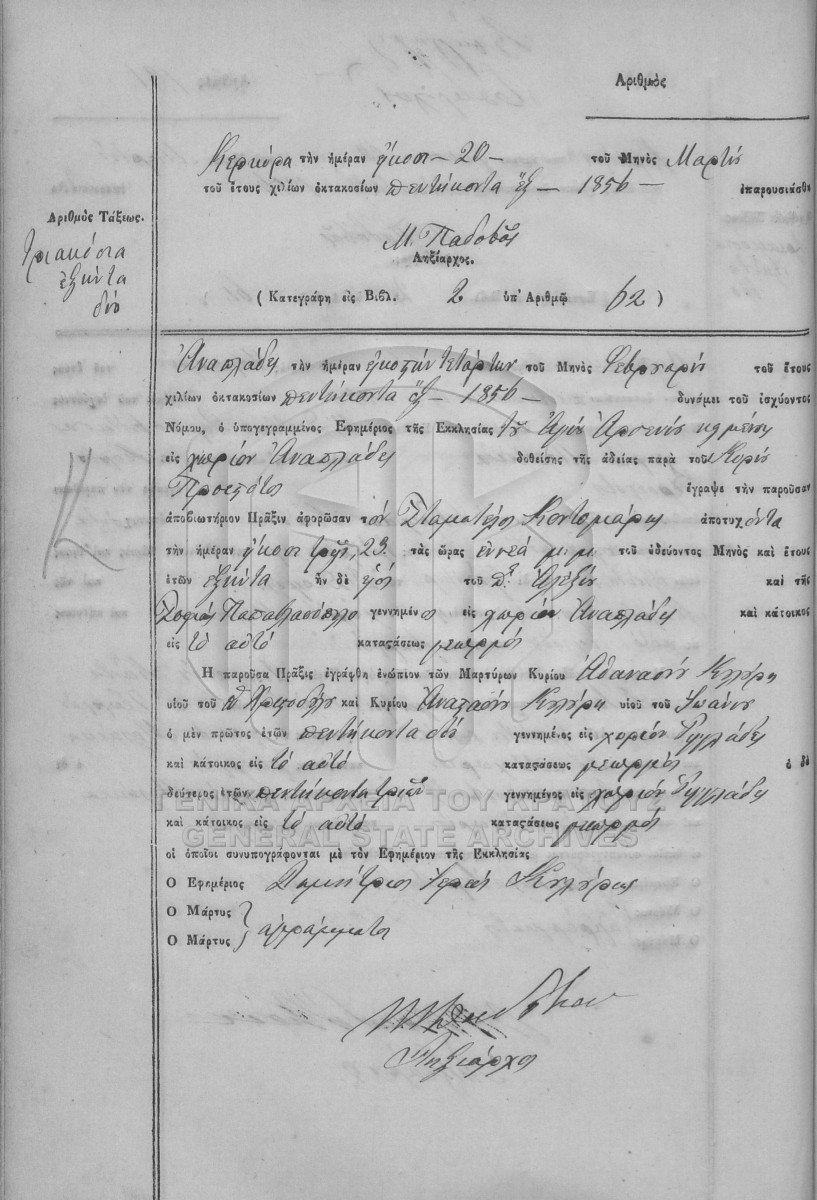 Ἀριθμὸς
Κερκύρα τὴν ἡμέραν ἤκοσι – 20 – τοῦ Μηνὸς Μαρτίȣ
τοῦ ἔτους χιλίων ὀκτακοσίων πεντήκοντα ἕξ – 1856 – ἐπαρουσιάσθη
Ἀριθμὸς Τάξεως.
τριακόσια
ἑξήντα
δύο
Μ. Παδοβᾶς
Ληξίαρχος.
( Κατεγράφη εἰς Βιβλ. 2 ὑπ' Ἀριθμῷ 62 )
Ἀναπλάδες τὴν ἡμέραν ἠκοστὴν τετάρτην τοῦ Μηνὸς Φεβρουαρίȣ τοῦ ἔτους
χιλίων ὀκτακοσίων πεντήκοντα ἕξ – 1856 – δυνάμει τοῦ ἰσχύοντος
Νόμου, ὁ ὑπογεγραμμένος Ἐφημέριος τῆς Ἐκκλησίας τȣ Ἁγίȣ Ἀρσενίȣ
εἰς χωρίον Ἀναπλάδες δοθείσης τῆς ἀδείας παρὰ τοῦ Κυρίȣ
Προεστότος ἔγραψε τὴν παροῦσαν
ἀποβιωτήριον Πρᾶξιν ἀφορῶσαν τὸν Σταματέλος Κοντομάρης ἀποτυχόντα
τὴν ἡμέραν ἤκοσι τρῆς, 23. τὰς ὥρας ἐννέα μ: μ. τοῦ ὁδεύοντος Μηνὸς καὶ ἔτους
ἐτῶν ἑξήντα ἦν δὲ ὑιὸς τοῦ πͦ Ἀλεξίȣ καὶ τῆς
Σοφίας γεννημένος εἰς χωρίον Ἀναπλάδες καὶ κάτοικος
εἰς τὸ αὐτὸ καταςάσεως γεωργός
Ἡ παροῦσα Πρᾶξις ἐγράφθη ἐνώπιον τῶν Μαρτύρων Κυρίου Ἀθανασίȣ
υἱοῦ τοῦ πͦ Χριστοδούλȣ καὶ Κυρίου Ἀναστασίȣ υἱοῦ τοῦ Ἰωάννȣ
ὁ μὲν πρῶτος ἐτῶν πεντήκοντα γεννημένος εἰς χωρίον Ριγγλάδες
καὶ κάτοικος εἰς τὸ αὐτὸ καταςάσεως γεωργός ὁ δὲ
δεύτερος ἐτῶν πεντήκοντα τριῶν γεννημένος εἰς χωρίον Ριγγλάδες
καὶ κάτοικος εἰς τὸ αὐτὸ καταςάσεως γεωργός
οἱ ὁποῖοι συνυπογράφονται μὲ τὸν Ἐφημέριον τῆς Ἐκκλησίας
Ὁ Ἐφημέριος Δημήτριος Ἱερεὺς
Ὁ Μάρτυς
Ὁ Μάρτυς } ἀγράμματοι
Ληξίαρχος
ΓΕΝΙΚΑ ΑΡΧΕΙΑ ΤΟΥ ΚΡΑΤΟΥΣ
GENERAL STATE ARCHIVES